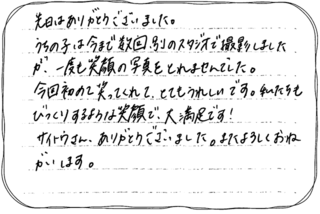 先日はありがとうございました。
うちの子は今まで数回、別のスタジオで撮影しました
が、一度も笑顔の写真をとれませんでした。
今回初めて笑ってくれて、とてもうれしいです。私たちも
びっくりするような笑顔で、大満足です!
サイトウさん、ありがとうございました。またよろしくおね
がいします。